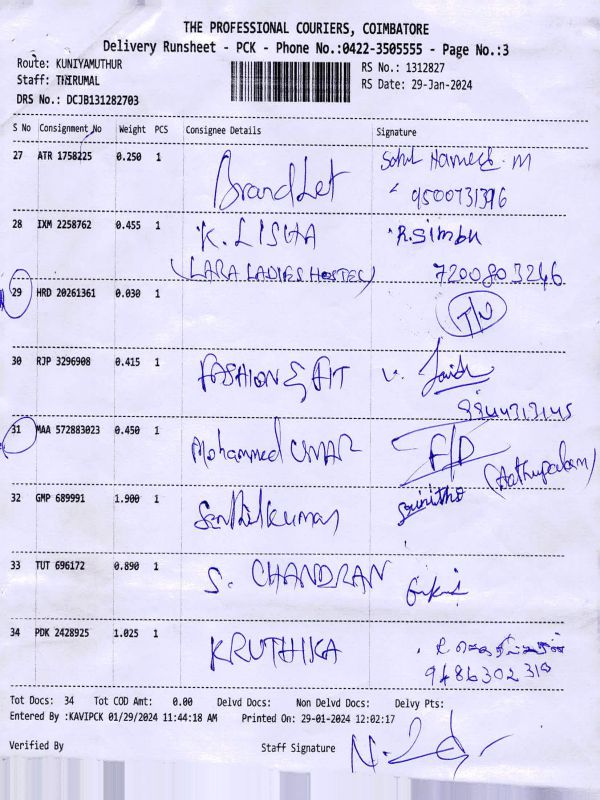 THE PROFESSIONAL COURIERS, COIMBATORE
Delivery Runsheet - PCK - Phone No.:0422-3505555 - Page No.:3
Route: KUNIYAMUTHUR
RS No.: 1312827
Staff: THIRUMAL
RS Date: 29-Jan-2024
DRS No.: DCJB131282703
S No Consignment No Weight PCS Consignee Details Signature
27 ATR 1758225 0.250 1 BrandLet
9500731396
28 IXM 2258762 0.455 1 K. LISHA R.Simbu
(LARA LADIES HOSTEL) 7200803246
29 HRD 20261361 0.030 1
30 RJP 3296908 0.415 1 FASHION & FIT
31 MAA 572883023 0.450 1 Mohammed UMAR F/D
32 GMP 689991 1.900 1 Senthilkumar Sunitha
33 TUT 696172 0.890 1 S. CHANDRAN
34 PDK 2428925 1.025 1 KRUTHIKA
9486302310
Tot Docs: 34 Tot COD Amt: 0.00 Delvd Docs: Non Delvd Docs: Delvy Pts:
Entered By :KAVIPCK 01/29/2024 11:44:18 AM Printed On: 29-01-2024 12:02:17
Verified By Staff Signature